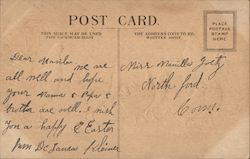 POST CARD.
THIS SPACE MAY BE USED
FOR COMMUNICATION
THE ADDRESS ONLY TO BE
WRITTEN HERE
PLACE
POSTAGE
STAMP
HERE
Dear Manila we are
all well and hope
your Mama & Papa &
brother are well. I wish
you a happy Easter
from
Miss Manilla
North ford.
Conn.